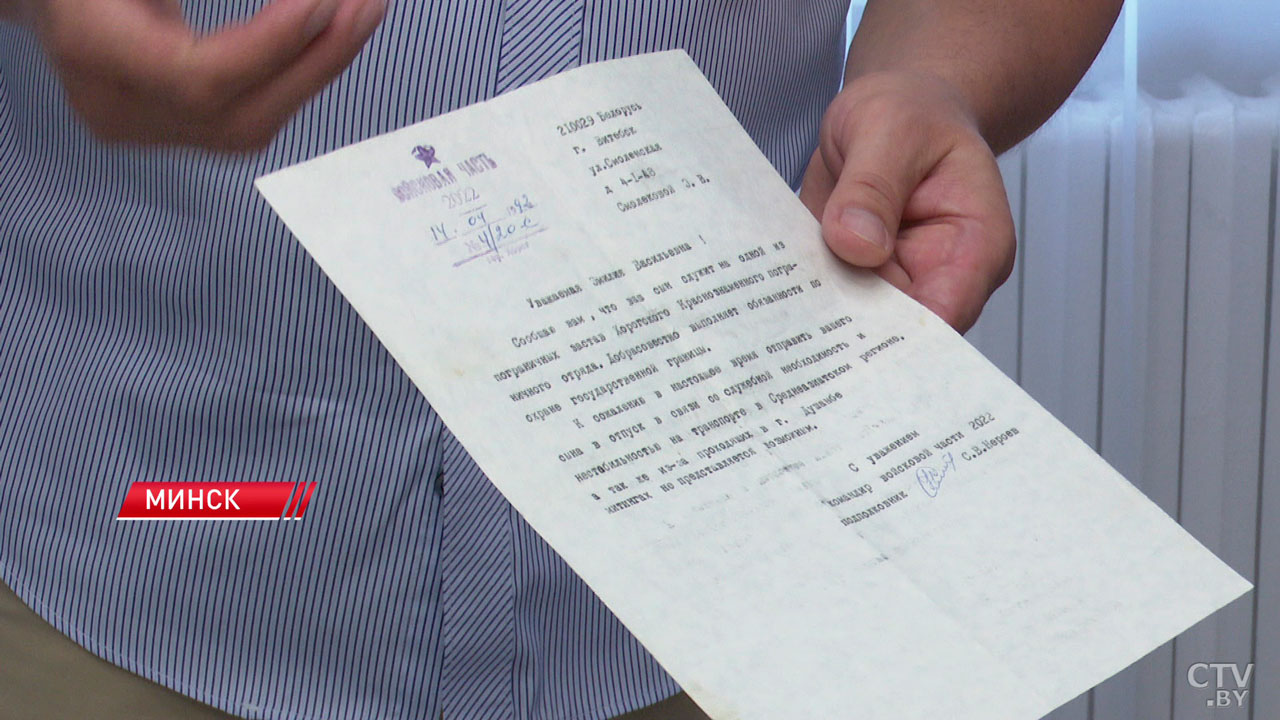 ВОЙСКОВАЯ ЧАСТЬ
2022
14. 04 1992
№ 4/20 с
210029 Белорусь
г. Витебск
ул.Смоленская
д 4-1-48
Смолековой Э.В.
Уважаемая Эмилия Васильевна !
Сообщаю вам, что ваш сын служит на одной из
пограничных застав Хорогского Краснознаменного погра-
ничного отряда. Добрасовестно выполняет обязанности по
охране государственной границы.
К сожалению в настоящее время отправить вашего
сына в отпуск в связи со служебной необходимость и
нестабильностью на транспорте в Среднеазиатском регионе,
а так же из-за проходящих в г. Душанбе
митингах не представляется возможным.
С уважением
командир войсковой части 2022
подполковник С.В.Мероев
МИНСК
CTV
.BY